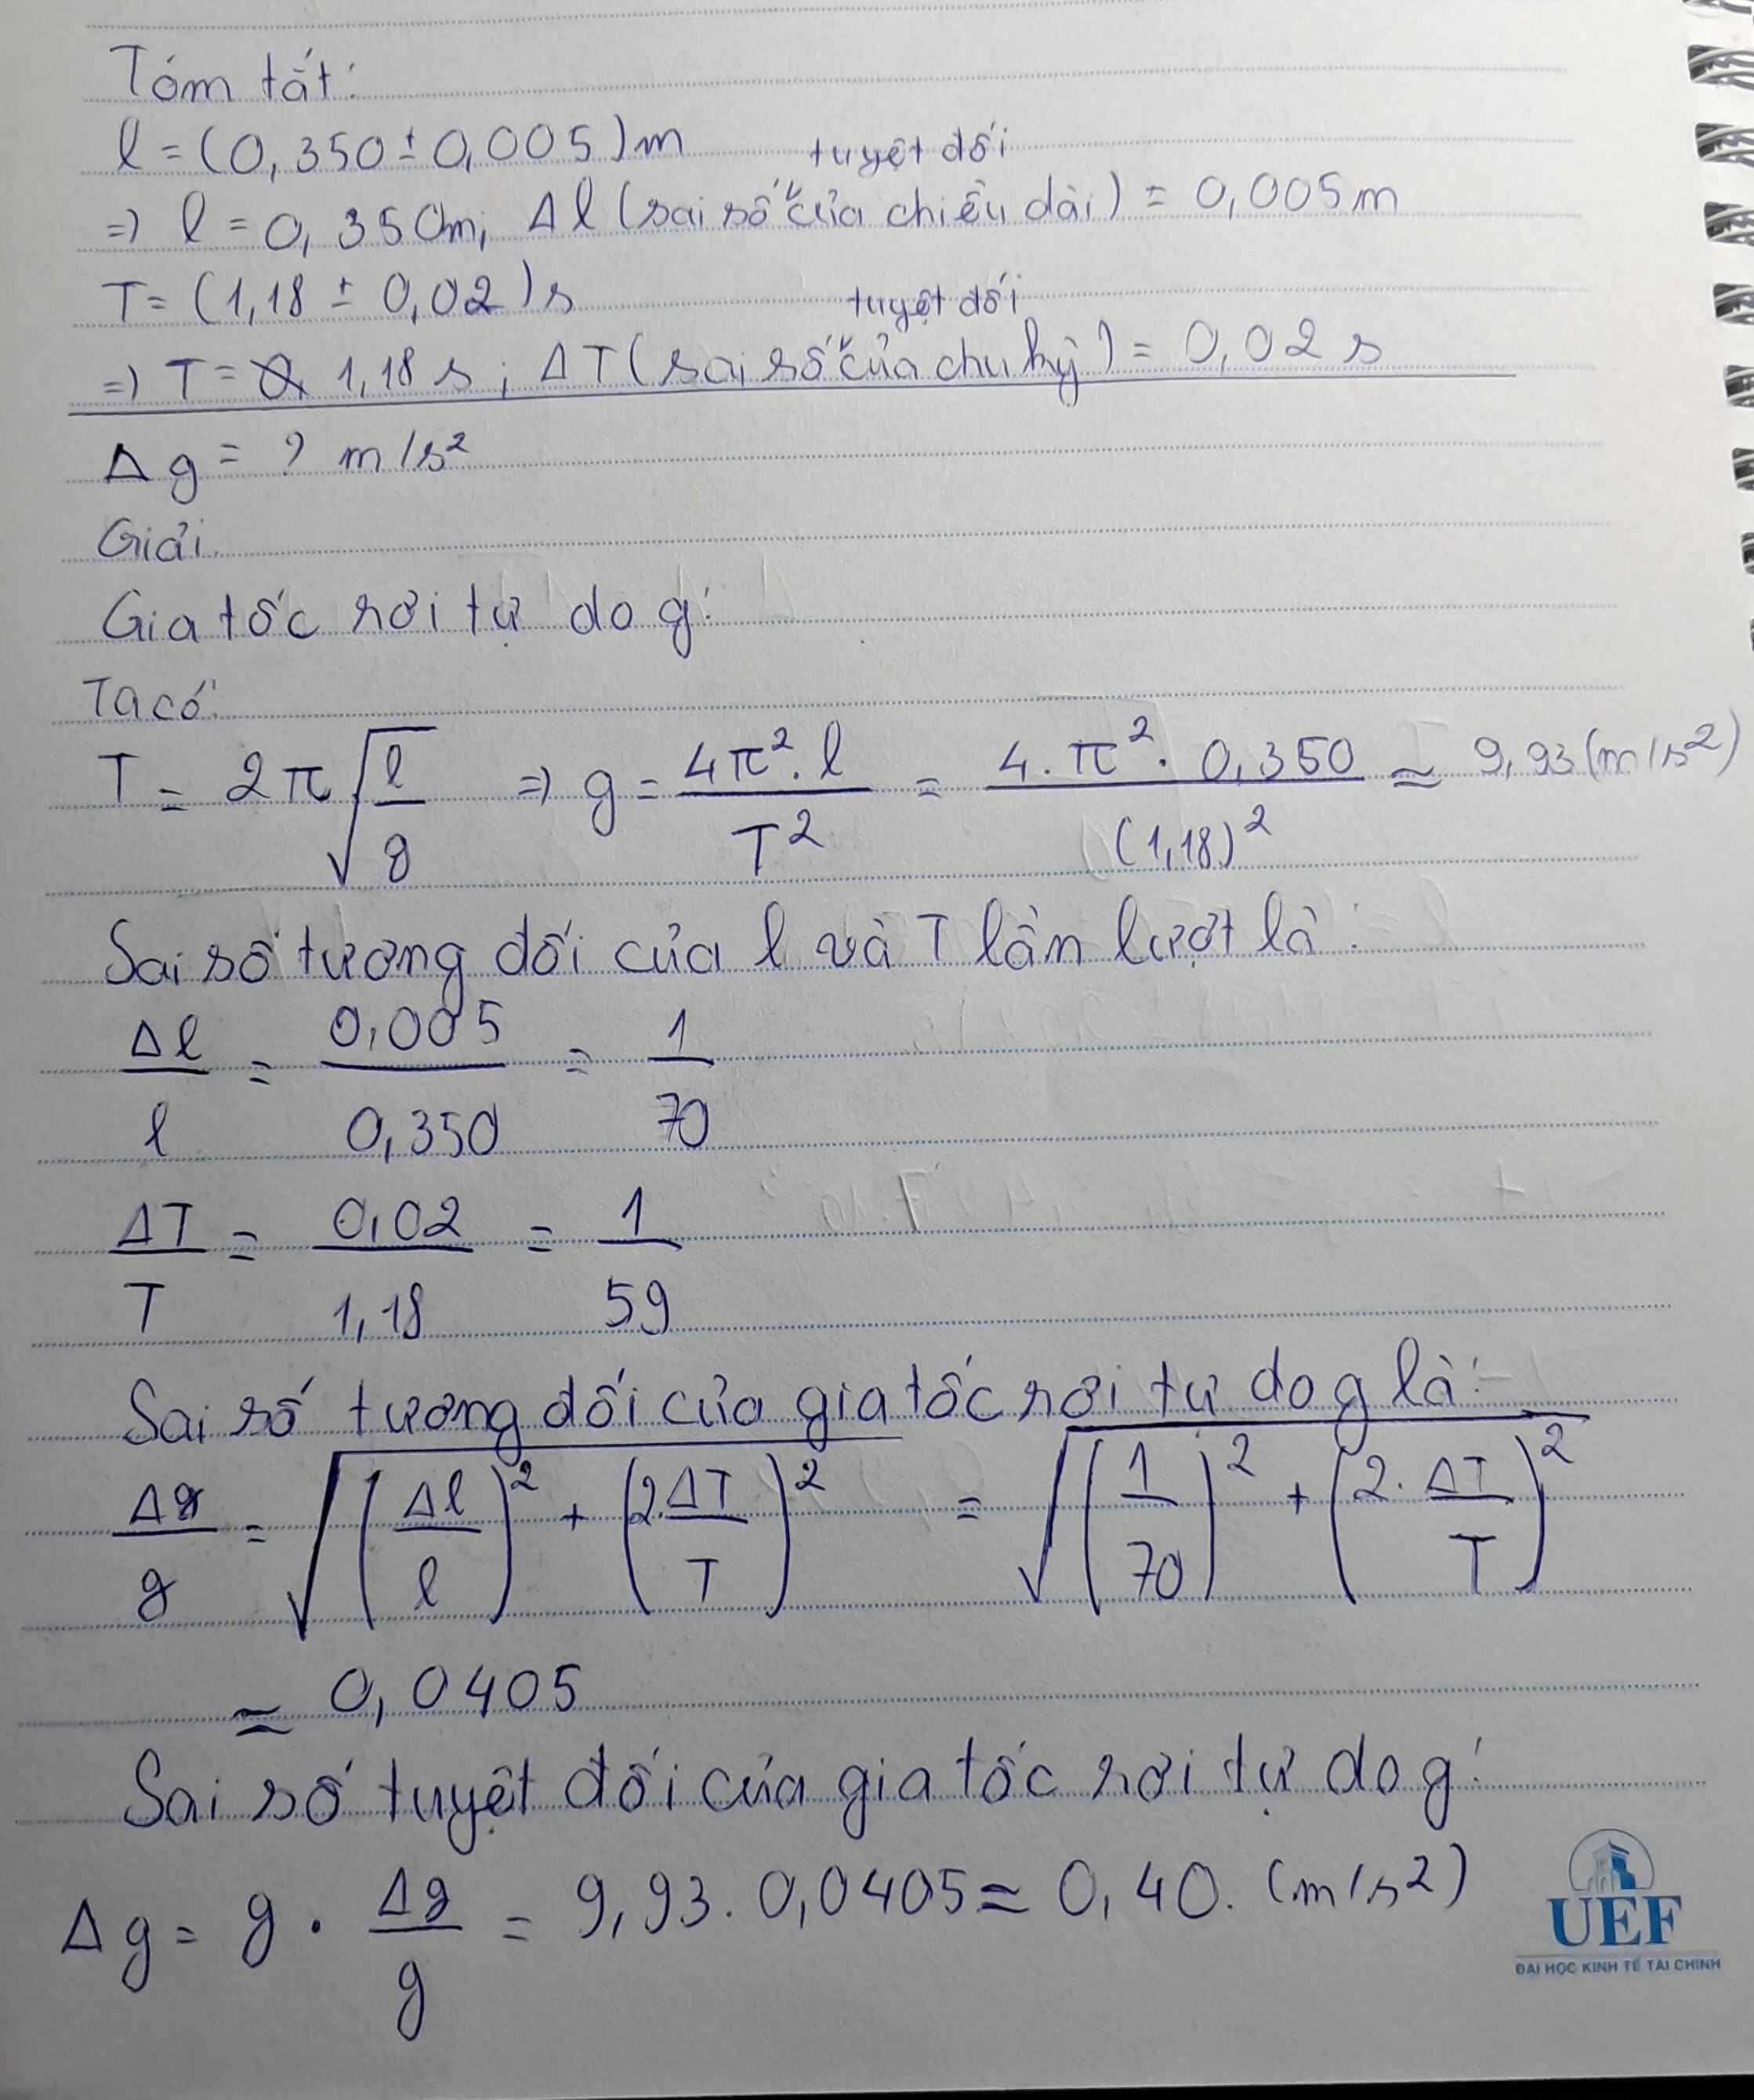 Tóm tắt:
l = (0,350 ± 0,005)m
tuyệt đối
=> l = 0,350m; Δl (sai số ̆ của chiều dài) = 0,005m
T = (1,18 ± 0,02)s
tuyệt đối
=> T = 1,18 s; ΔT (sai số ̆ của chu kỳ) = 0,02 s
Δg = ? m/s²
Giải.
Gia tốc rơi tự do g:
Ta có:
T = 2π√(l/g) => g = 4π².l / T² = 4.π².0,350 / (1,18)² ≃ 9,93(m/s²)
Sai số tương đối của l và T lần lượt là:
Δl/l = 0,005/0,350 = 1/70
ΔT/T = 0,02/1,18 = 1/59
Sai số tương đối của gia tốc rơi tự do g là:
Δg/g = √((Δl/l)² + (2.ΔT/T)²) = √((1/70)² + (2.ΔT/T)²)
≃ 0,0405
Sai số tuyệt đối của gia tốc rơi tự do g:
Δg = g . Δg/g = 9,93.0,0405 ≃ 0,40. (m/s²)
UEF
ĐẠI HỌC KINH TẾ TÀI CHÍNH